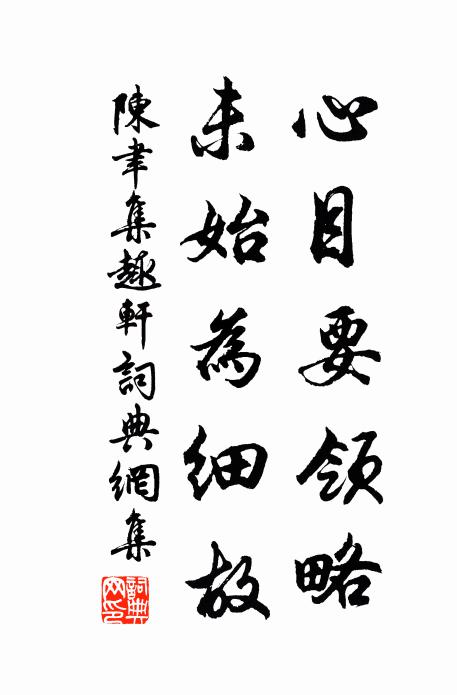 心目要領略
未始為細故
陳芈集趣軒詞典網集
詞典